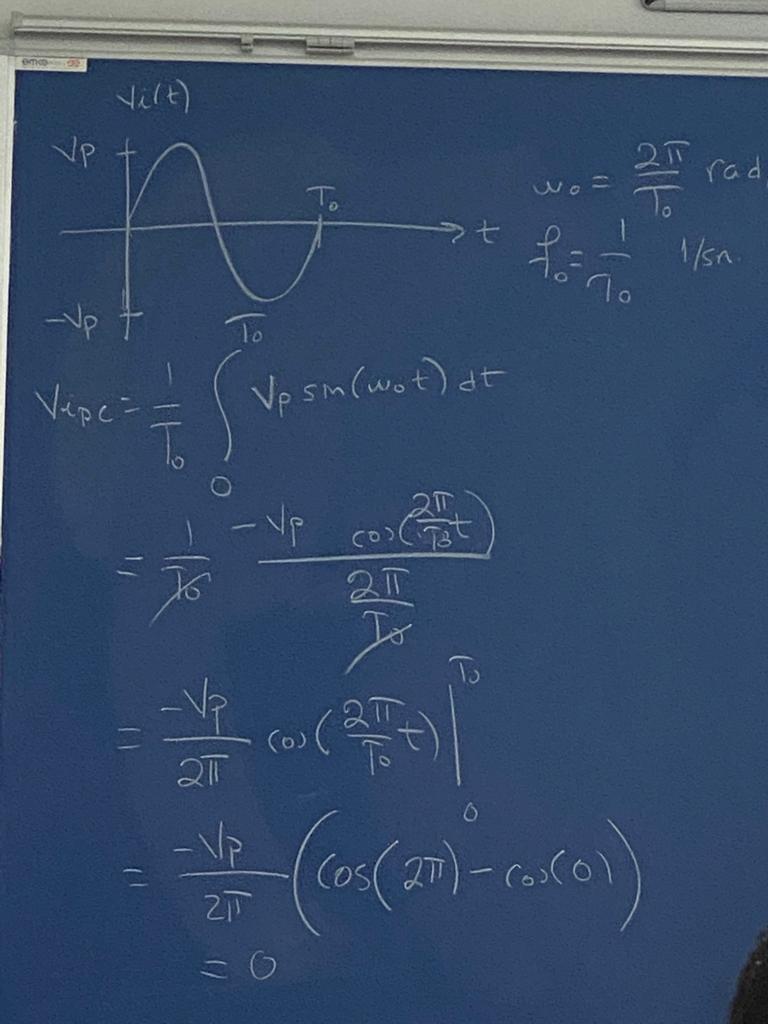 emko
Vi(t)
Vp
T₀
t
-Vp
ω₀ = 2π/T₀ rad
f₀ = 1/T₀ 1/sn.
ViDC = 1/T₀ ∫₀^T₀ Vp sin(ω₀t) dt
= 1/T₀ -Vp cos(2π/T₀ t) / (2π/T₀)
= -Vp/2π cos(2π/T₀ t) |₀^T₀
= -Vp/2π (cos(2π) - cos(0))
= 0